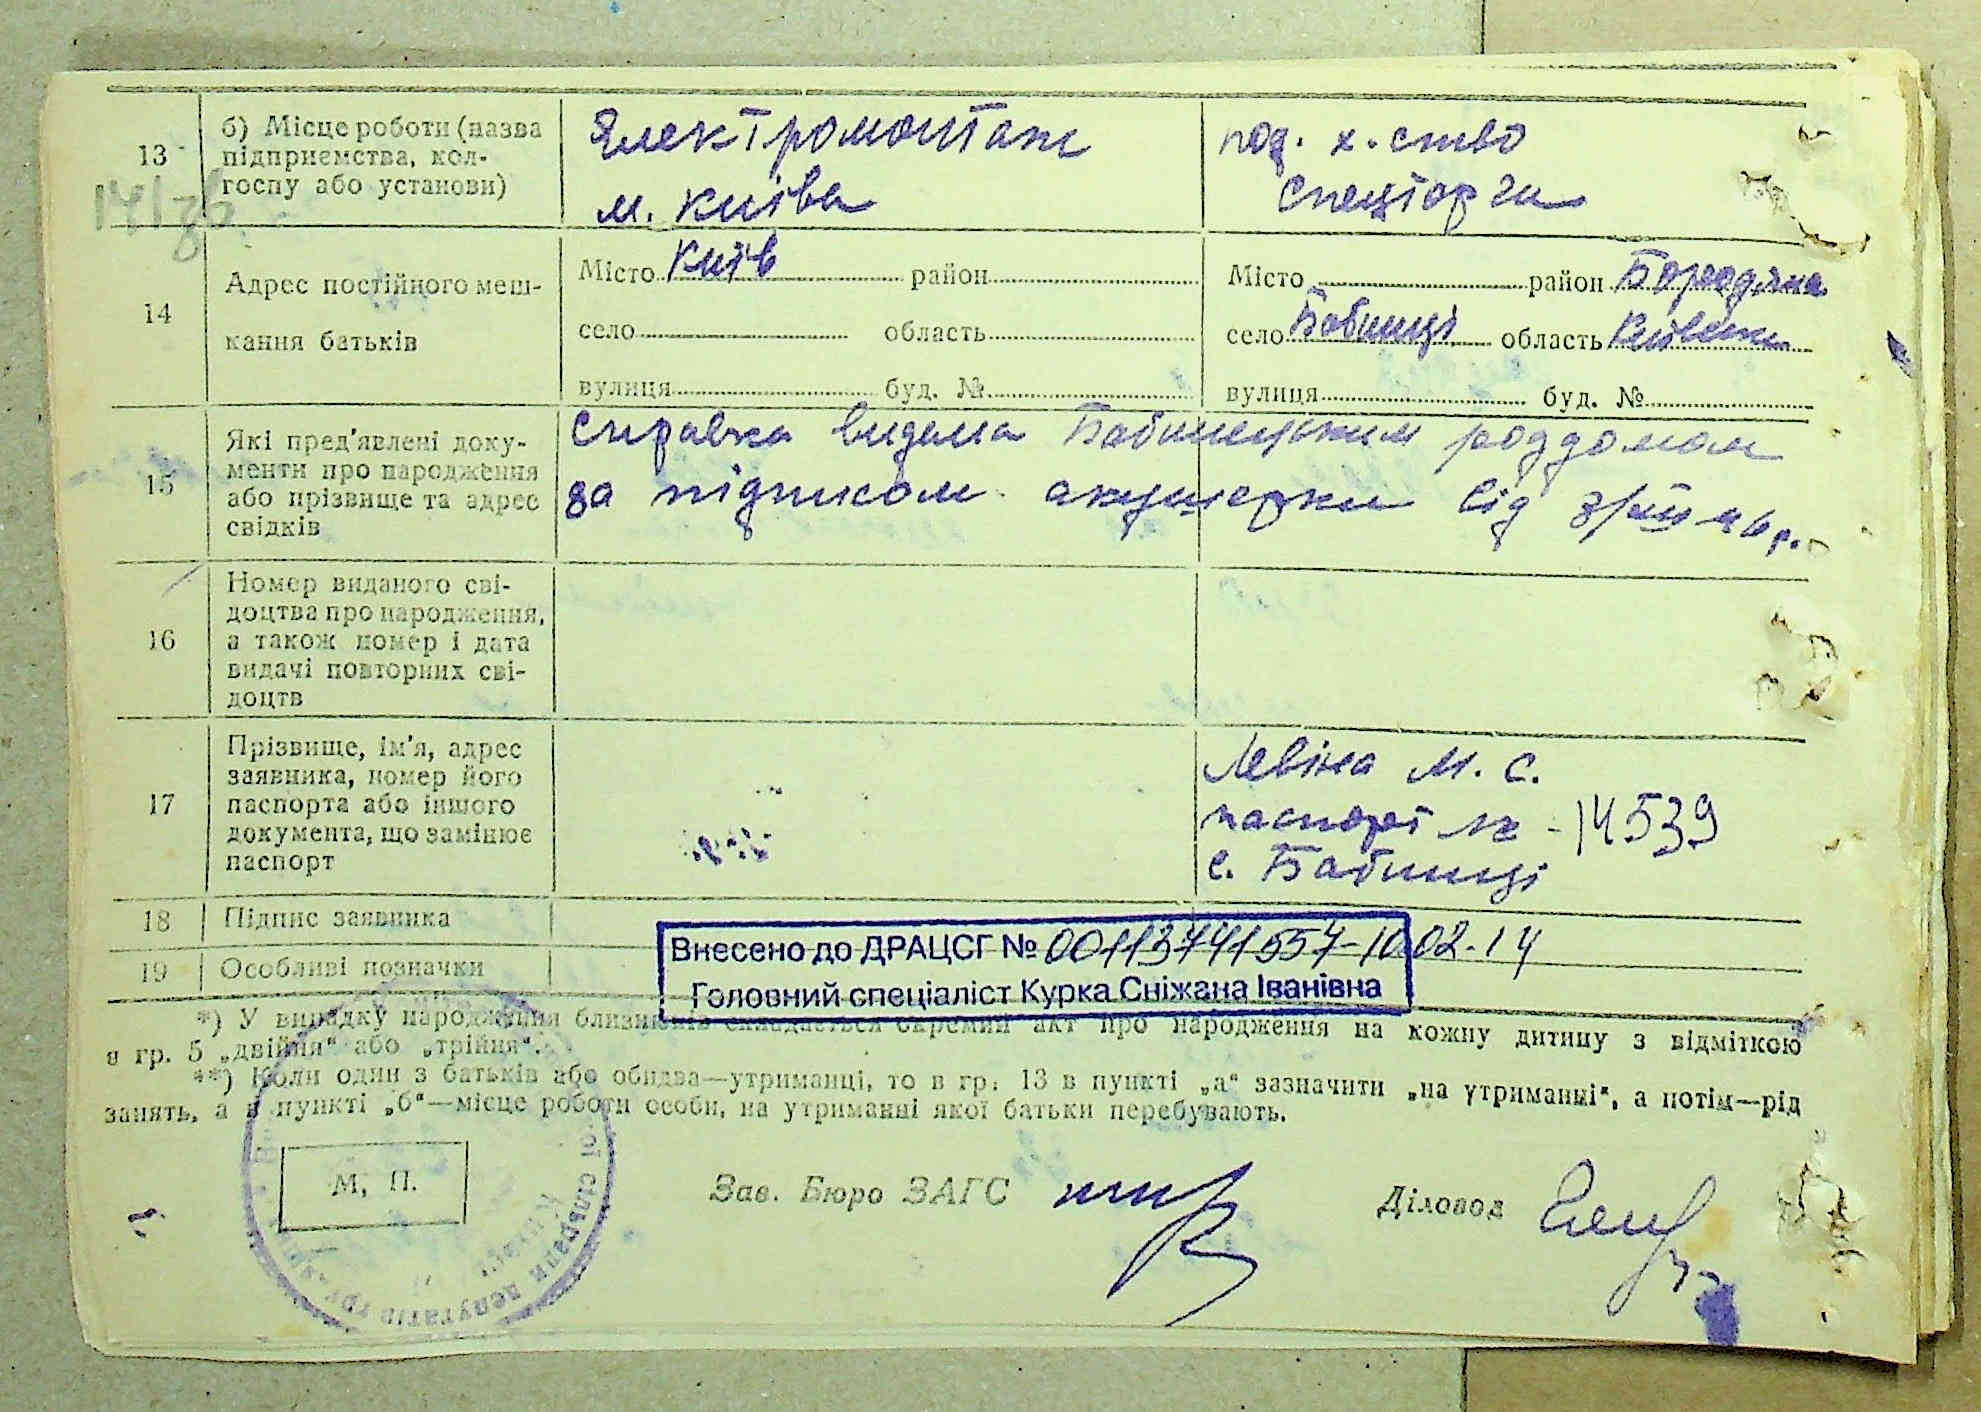 13
б) Місце роботи (назва
підприємства, кол-
госпу або установи)
Електромонтаж
м. Київа
под. х. ство
Спецторги
14
Адрес постійного меш-
кання батьків
Місто Київ район
село область
вулиця буд. №
Місто район Бородянка
село Бабинці область Київськ
вулиця буд. №
15
Які пред'явлені доку-
менти про народження
або прізвище та адрес
свідків
Справка видана Бабинецьким роддомом
за підписом акушерки від
16
Номер виданого сві-
доцтва про народження,
а також номер і дата
видачі повторних сві-
доцтв
17
Прізвище, ім'я, адрес
заявника, номер його
паспорта або іншого
документа, що замінює
паспорт
Левіна М. С.
паспорт № - 14539
с. Бабинці
18 Підпис заявника
19 Особливі позначки
Внесено до ДРАЦСГ № 00113741557-10.02.14
Головний спеціаліст Курка Сніжана Іванівна
*) У випадку народження близнюків складається окремий акт про народження на кожну дитину з відміткою
в гр. 5 „двійня“ або „трійня“.
**) Коли один з батьків або обидва—утриманці, то в гр. 13 в пункті „а“ зазначити „на утриманні“, а потім—рід
занять, а в пункті „б“—місце роботи особи, на утриманні якої батьки перебувають.
М. П.
Зав. Бюро ЗАГС
Діловод